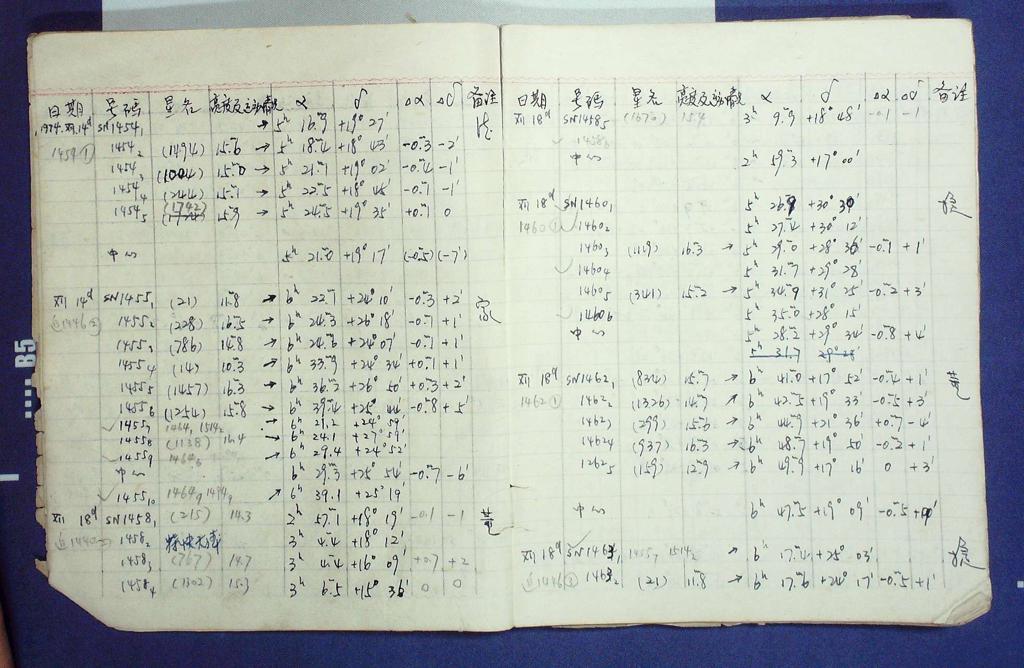 日期 号码 星名 亮度及运动情况 α δ Δα Δδ 备注
1974.Ⅻ.14ᵈ SN1454₁ → 5ʰ 16.ᵐ9 +19° 27′
1454① 1454₂ (1494) 15.ᵐ6 → 5ʰ 18.ᵐ4 +18° 43′ -0.ᵐ3 -2′
1454₃ (1004) 15.ᵐ0 → 5ʰ 21.ᵐ1 +19° 02′ -0.ᵐ4 -1′
1454₄ (244) 15.ᵐ1 → 5ʰ 22.ᵐ5 +18° 45′ -0.ᵐ1 -1′
(1742)
1454₅ 15.ᵐ9 → 5ʰ 24.ᵐ5 +19° 35′ +0.ᵐ1 0
中心 5ʰ 21.ᵐ0 +19° 17′ (-0.ᵐ5) (-7′)
Ⅻ 14ᵈ SN1455₁ (21) 11.ᵐ8 → 6ʰ 22.ᵐ1 +24° 10′ -0.ᵐ3 +2′
近1446② 1455₂ (228) 16.ᵐ5 → 6ʰ 24.ᵐ3 +26° 18′ -0.ᵐ1 +1′
1455₃ (786) 14.ᵐ8 → 6ʰ 24.ᵐ6 +24° 07′ -0.ᵐ1 +1′
1455₄ (14) 10.ᵐ3 → 6ʰ 33.ᵐ9 +24° 34′ +0.ᵐ1 +1′
1455₅ (1457) 16.ᵐ3 → 6ʰ 36.ᵐ2 +26° 50′ +0.ᵐ3 +2′
1455₆ (1254) 15.ᵐ8 → 6ʰ 39.ᵐ4 +25° 44′ -0.ᵐ8 +5′
✓ 1455₇ 1464₁ 1514₂ → 6ʰ 21.2 +24° 59′
1455₈ (1138) 16.4 → 6ʰ 24.1 +27° 59′
✓ 1455₉ 1464₆ → 6ʰ 29.4 +24° 52′
中心 6ʰ 29.ᵐ3 +25° 54′ -0.ᵐ7 -6′
✓ 1455₁₀ → 6ʰ 39.1 +25° 19′
Ⅻ 18ᵈ SN1458₁ (215) 14.3 2ʰ 57.ᵐ1 +18° 19′ -0.1 -1
1458₂ 3ʰ 4.ᵐ4 +18° 12′
1458₃ (767) 14.7 3ʰ 4.ᵐ4 +16° 09′ +0.7 +2
1458₄ (1302) 15.3 3ʰ 6.ᵐ5 +15° 36′ 0 0
日期 号码 星名 亮度及运动情况 α δ Δα Δδ 备注
Ⅻ 18ᵈ SN1458₅ (1676) 15.9 3ʰ 9.ᵐ9 +18° 48′ -0.1 -1
1458₆
中心 2ʰ 59.ᵐ3 +17° 00′
Ⅻ 18ᵈ ✓SN1460₁ 5ʰ 26.ᵐ9 +30° 30′
1460① ✓1460₂ 5ʰ 27.ᵐ4 +30° 12′
1460₃ (1119) 16.ᵐ3 → 5ʰ 29.ᵐ0 +28° 36′ -0.ᵐ1 +1′
✓ 1460₄ 5ʰ 31.ᵐ7 +29° 28′
1460₅ (341) 15.ᵐ2 → 5ʰ 34.ᵐ9 +31° 25′ -0.ᵐ2 +3′
✓ 1460₆ 5ʰ 35.ᵐ0 +28° 15′
中心 5ʰ 28.ᵐ2 +29° 34′ -0.ᵐ8 +4′
5ʰ 31.7 29° 28′
Ⅻ 18ᵈ SN1462₁ (834) 15.ᵐ7 → 6ʰ 41.ᵐ0 +17° 52′ -0.ᵐ4 +1′
1462① 1462₂ (1326) 14.ᵐ7 → 6ʰ 42.ᵐ5 +19° 33′ -0.ᵐ5 +3′
1462₃ (299) 15.ᵐ6 → 6ʰ 44.ᵐ9 +21° 36′ +0.ᵐ7 -4′
1462₄ (937) 16.ᵐ3 → 6ʰ 48.ᵐ7 +19° 50′ -0.ᵐ2 +1′
1262₅ (159) 12.ᵐ9 → 6ʰ 49.ᵐ9 +17° 16′ 0 +3′
中心 6ʰ 47.ᵐ5 +19° 09′ -0.ᵐ5
Ⅻ 18ᵈ ✓SN1464₁ 1455₇ 1514₂ → 6ʰ 17.ᵐ4 +25° 03′
近1446② 1464₂ (21) 11.ᵐ8 → 6ʰ 17.ᵐ6 +24° 17′ -0.ᵐ5 +1′
B5